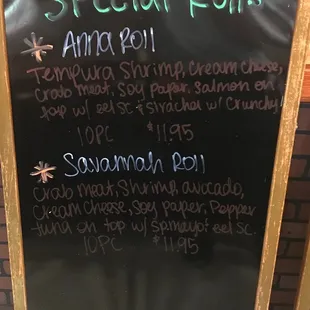 Special Rolls
Anna Roll
Tempura Shrimp, Cream Cheese,
Crab meat, Soy Paper, Salmon on
top w/ eel SC & Siracha w/ Crunchy
10PC $11.95
Savannah Roll
Crab meat, Shrimp, avocado,
Cream Cheese, Soy paper, Pepper
tuna on top w/ spmayo & eel SC.
10PC $11.95